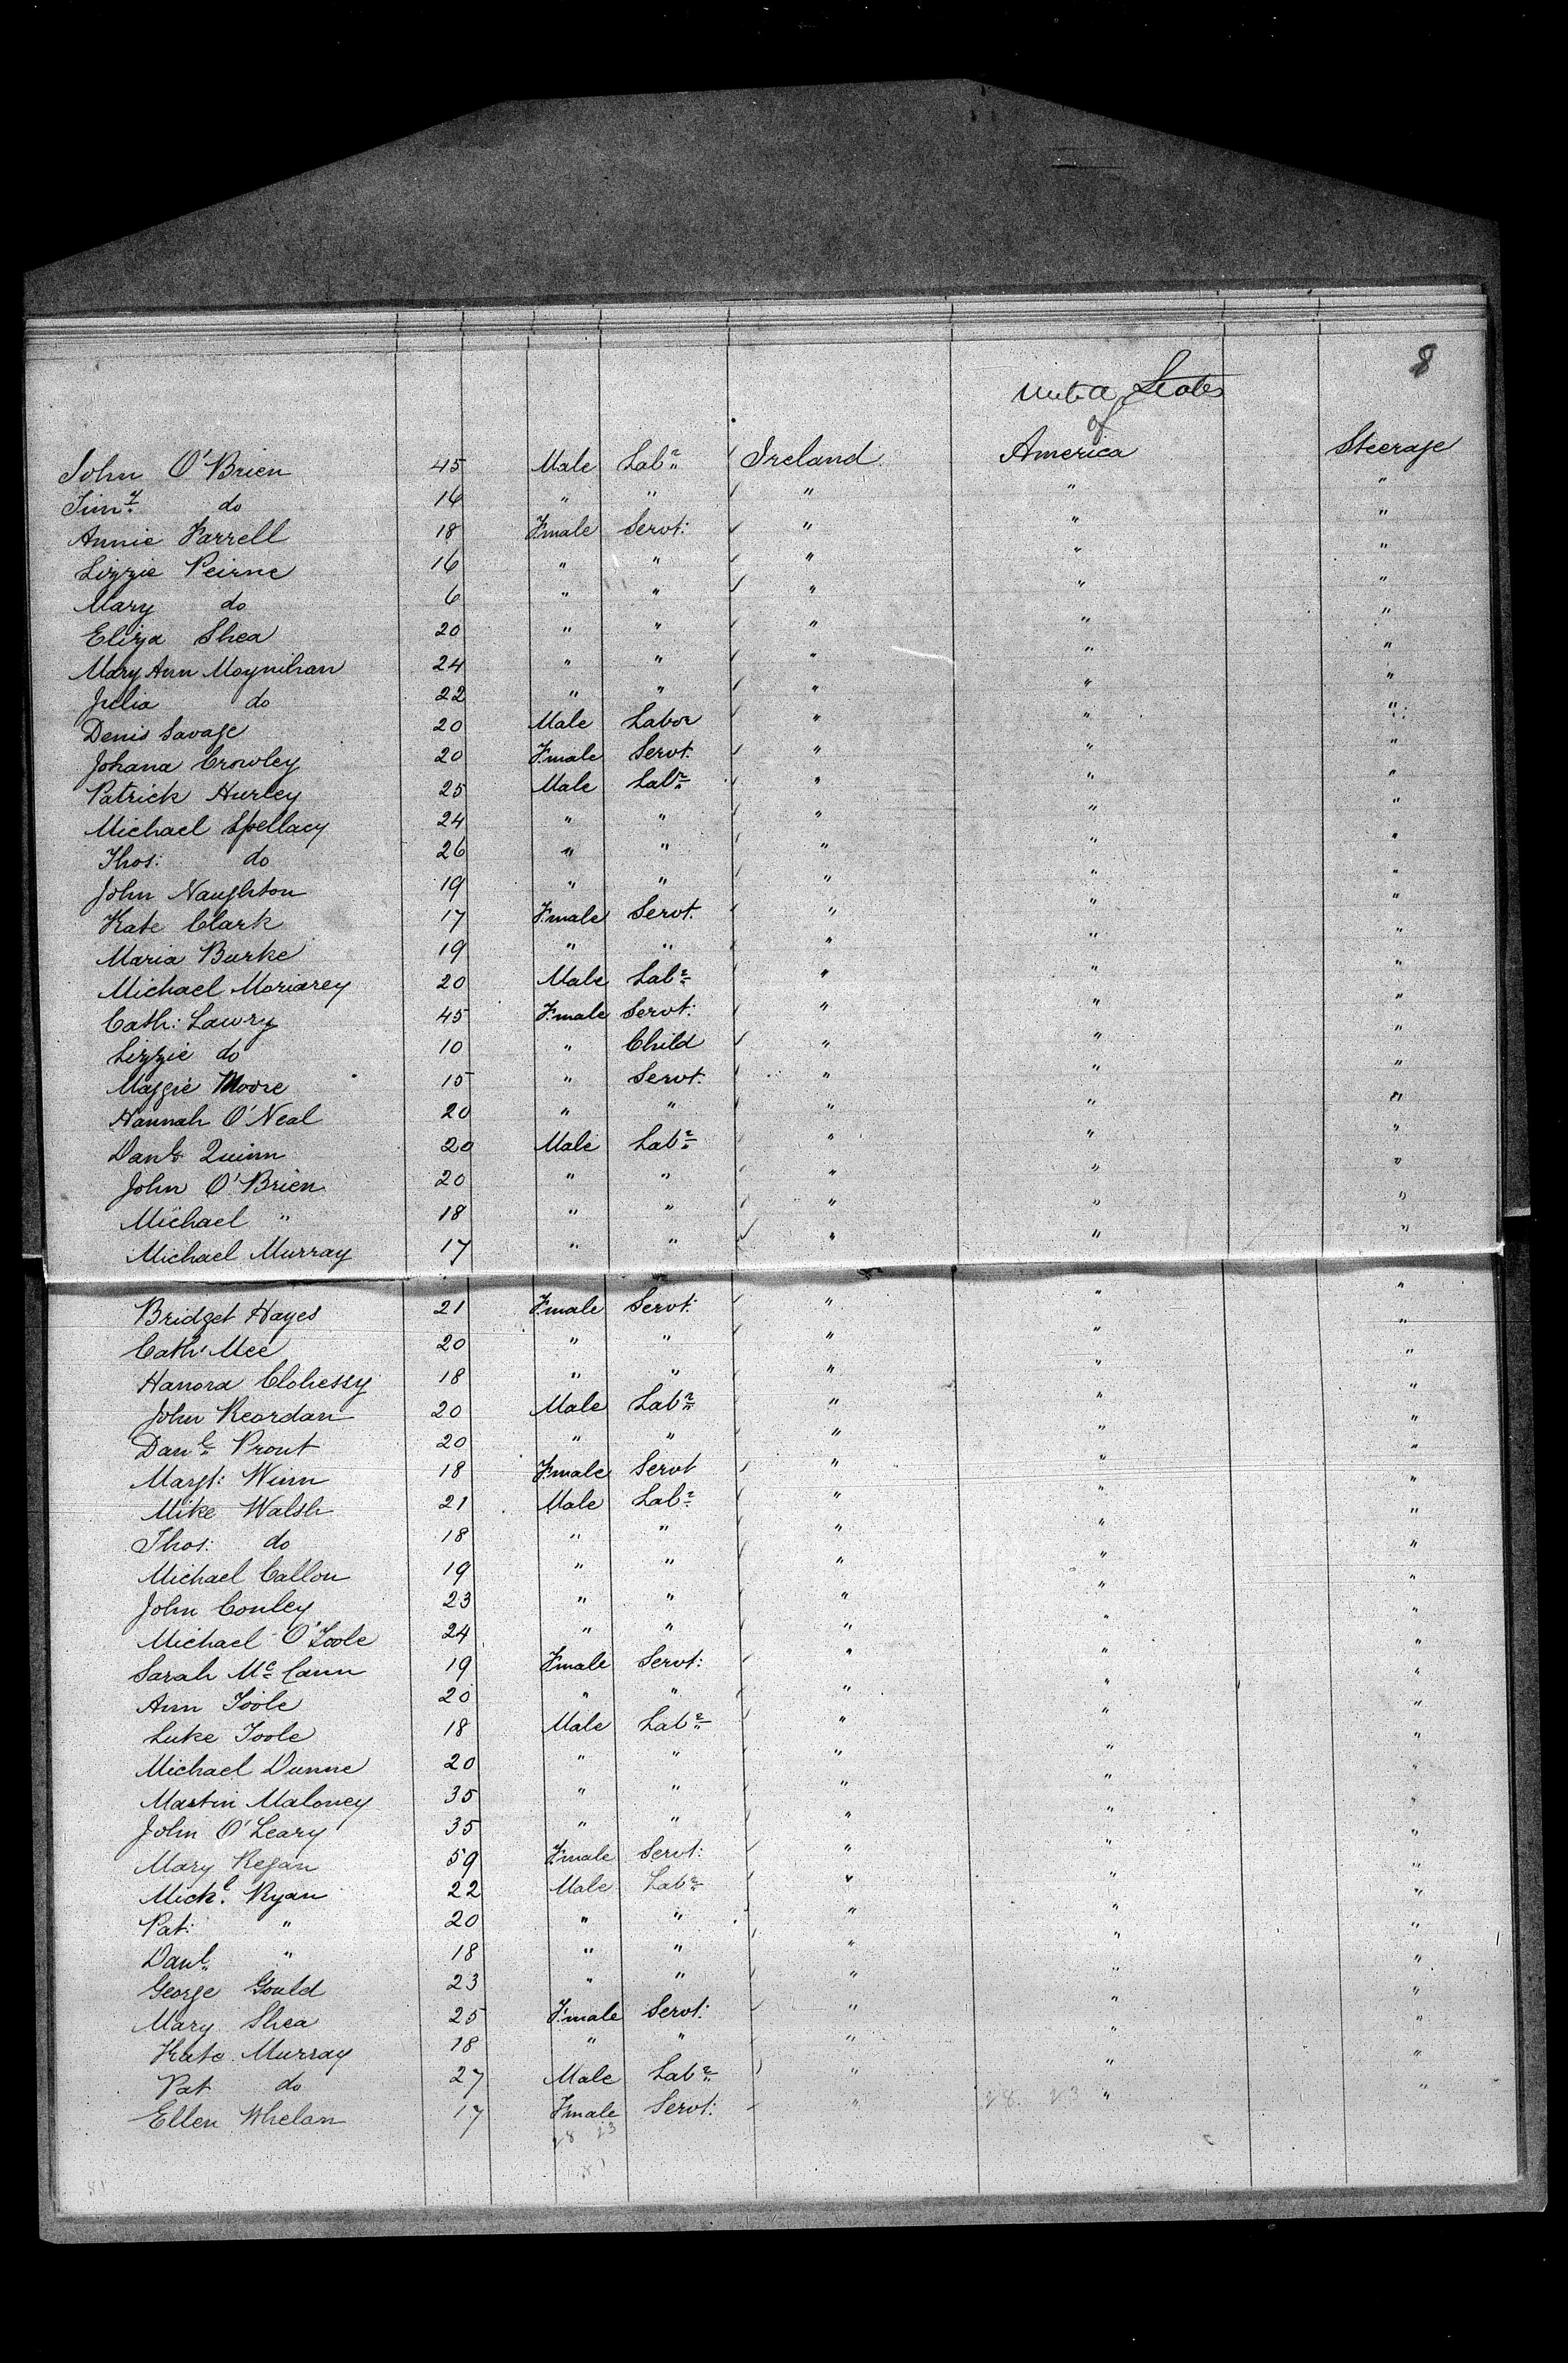 8
United States
of
John O'Brien 45 Male Labr Ireland America Steerage
Timy do 16 " " " " "
Annie Farrell 18 Fmale Servt: " " "
Lizzie Peirne 16 " " " " "
Mary do 6 " " " " "
Eliza Shea 20 " " " " "
Mary Ann Moynihan 24 " " " " "
Julia do 22 " " " " "
Denis Savage 20 Male Labor " " "
Johana Crowley 20 Fmale Servt. " " "
Patrick Hurley 25 Male Labr " " "
Michael Spellacy 24 " " " " "
Thos: do 26 " " " " "
John Naughton 19 " " " " "
Kate Clark 17 Fmale Servt. " " "
Maria Burke 19 " " " " "
Michael Moriarey 20 Male Labr " " "
Cath: Lawry 45 Fmale Servt: " " "
Lizzie do 10 " Child " " "
Maggie Moore 15 " Servt. " " "
Hannah O'Neal 20 " " " " "
Danl Quinn 20 Male Labr " " "
John O'Brien 20 " " " " "
Michael " 18 " " " " "
Michael Murray 17 " " " " "
Bridget Hayes 21 Fmale Servt: " " "
Cath: Mee 20 " " " " "
Hanora Clohessy 18 " " " " "
John Reordan 20 Male Labr " " "
Danl Prout 20 " " " " "
Margt: Winn 18 Fmale Servt " " "
Mike Walsh 21 Male Labr " " "
Thos: do 18 " " " " "
Michael Callon 19 " " " " "
John Conley 23 " " " " "
Michael O'Toole 24 " " " " "
Sarah Mc Cann 19 Fmale Servt: " " "
Ann Toole 20 " " " " "
Luke Toole 18 Male Labr " " "
Michael Dunne 20 " " " " "
Martin Maloney 35 " " " " "
John O'Leary 35 " " " " "
Mary Regan 59 Fmale Servt: " " "
Mickl. Ryan 22 Male Labr " " "
Pat: " 20 " " " " "
Danl " 18 " " " " "
George Gould 23 " " " " "
Mary Shea 25 Fmale Servt: " " "
Kate Murray 18 " " " " "
Pat do 27 Male Labr " " "
Ellen Whelan 17 Fmale Servt: " 28 23 " "
28 23